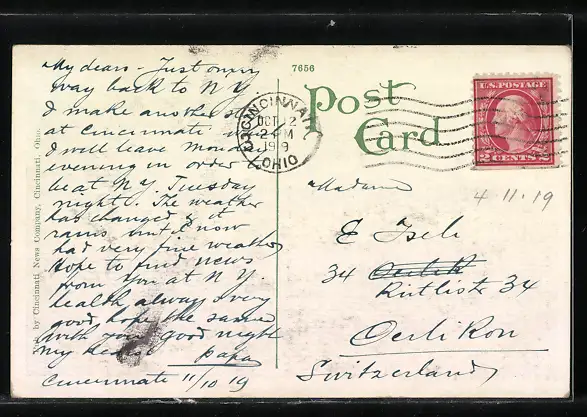 My dears - Just on my
way back to N Y
I make another st
at Cincinnati
I will leave Monda
evening in order
be at N Y. Tuesday
night. The weather
has changed & it
rains until now
had very fine weather
hope to find news
from you at N Y
health always very
good, hope the same
with you, good night
my dears papa
Cincinnati 11/10 19
by Cincinnati News Company, Cincinnati, Ohio.
7656
Post
Card
CINCINNATI
OCT 12
2 PM
1919
OHIO
U.S. POSTAGE
2 CENTS 2
4 11.19
Madame
E Iseli
34 Oerlik
Rütlistr 34
Oerlikon
Switzerland